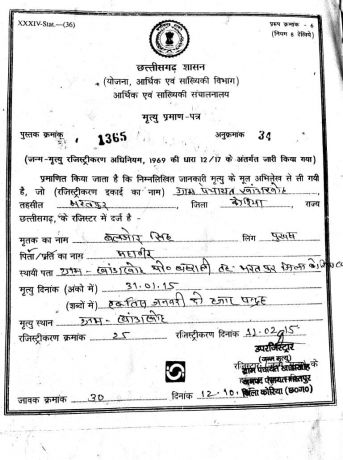 XXXIV-Stat.—(36)
प्ररूप क्रमांक - 6
(नियम 8 देखिये)
छत्तीसगढ़ शासन
(योजना, आर्थिक एवं सांख्यिकी विभाग)
आर्थिक एवं सांख्यिकी संचालनालय
मृत्यु प्रमाण-पत्र
पुस्तक क्रमांक 1365 अनुक्रमांक 34
(जन्म-मृत्यु रजिस्ट्रीकरण अधिनियम, 1969 की धारा 12/17 के अंतर्गत जारी किया गया)
प्रमाणित किया जाता है कि निम्नलिखित जानकारी मृत्यु के मूल अभिलेख से ली गयी
है, जो (रजिस्ट्रीकरण इकाई का नाम) ग्राम पंचायत
तहसील भरतपुर जिला कोरिया राज्य
छत्तीसगढ़, के रजिस्टर में दर्ज है -
मृतक का नाम सिंह लिंग पुरुष
पिता/पति का नाम महावीर
स्थायी पता ग्राम - पो० तह. भरतपुर जिला कोरिया
मृत्यु दिनांक (अंकों में) 31.01.15
(शब्दों में) इकतीस जनवरी दो हजार पन्द्रह
मृत्यु स्थान ग्राम -
रजिस्ट्रीकरण क्रमांक 25 रजिस्ट्रीकरण दिनांक 11.02.15
उपरजिस्ट्रार
(जन्म मृत्यु)
ग्राम पंचायत
जनपद पंचायत भरतपुर
जिला कोरिया (छ०ग०)
जावक क्रमांक 30 दिनांक 12.10.